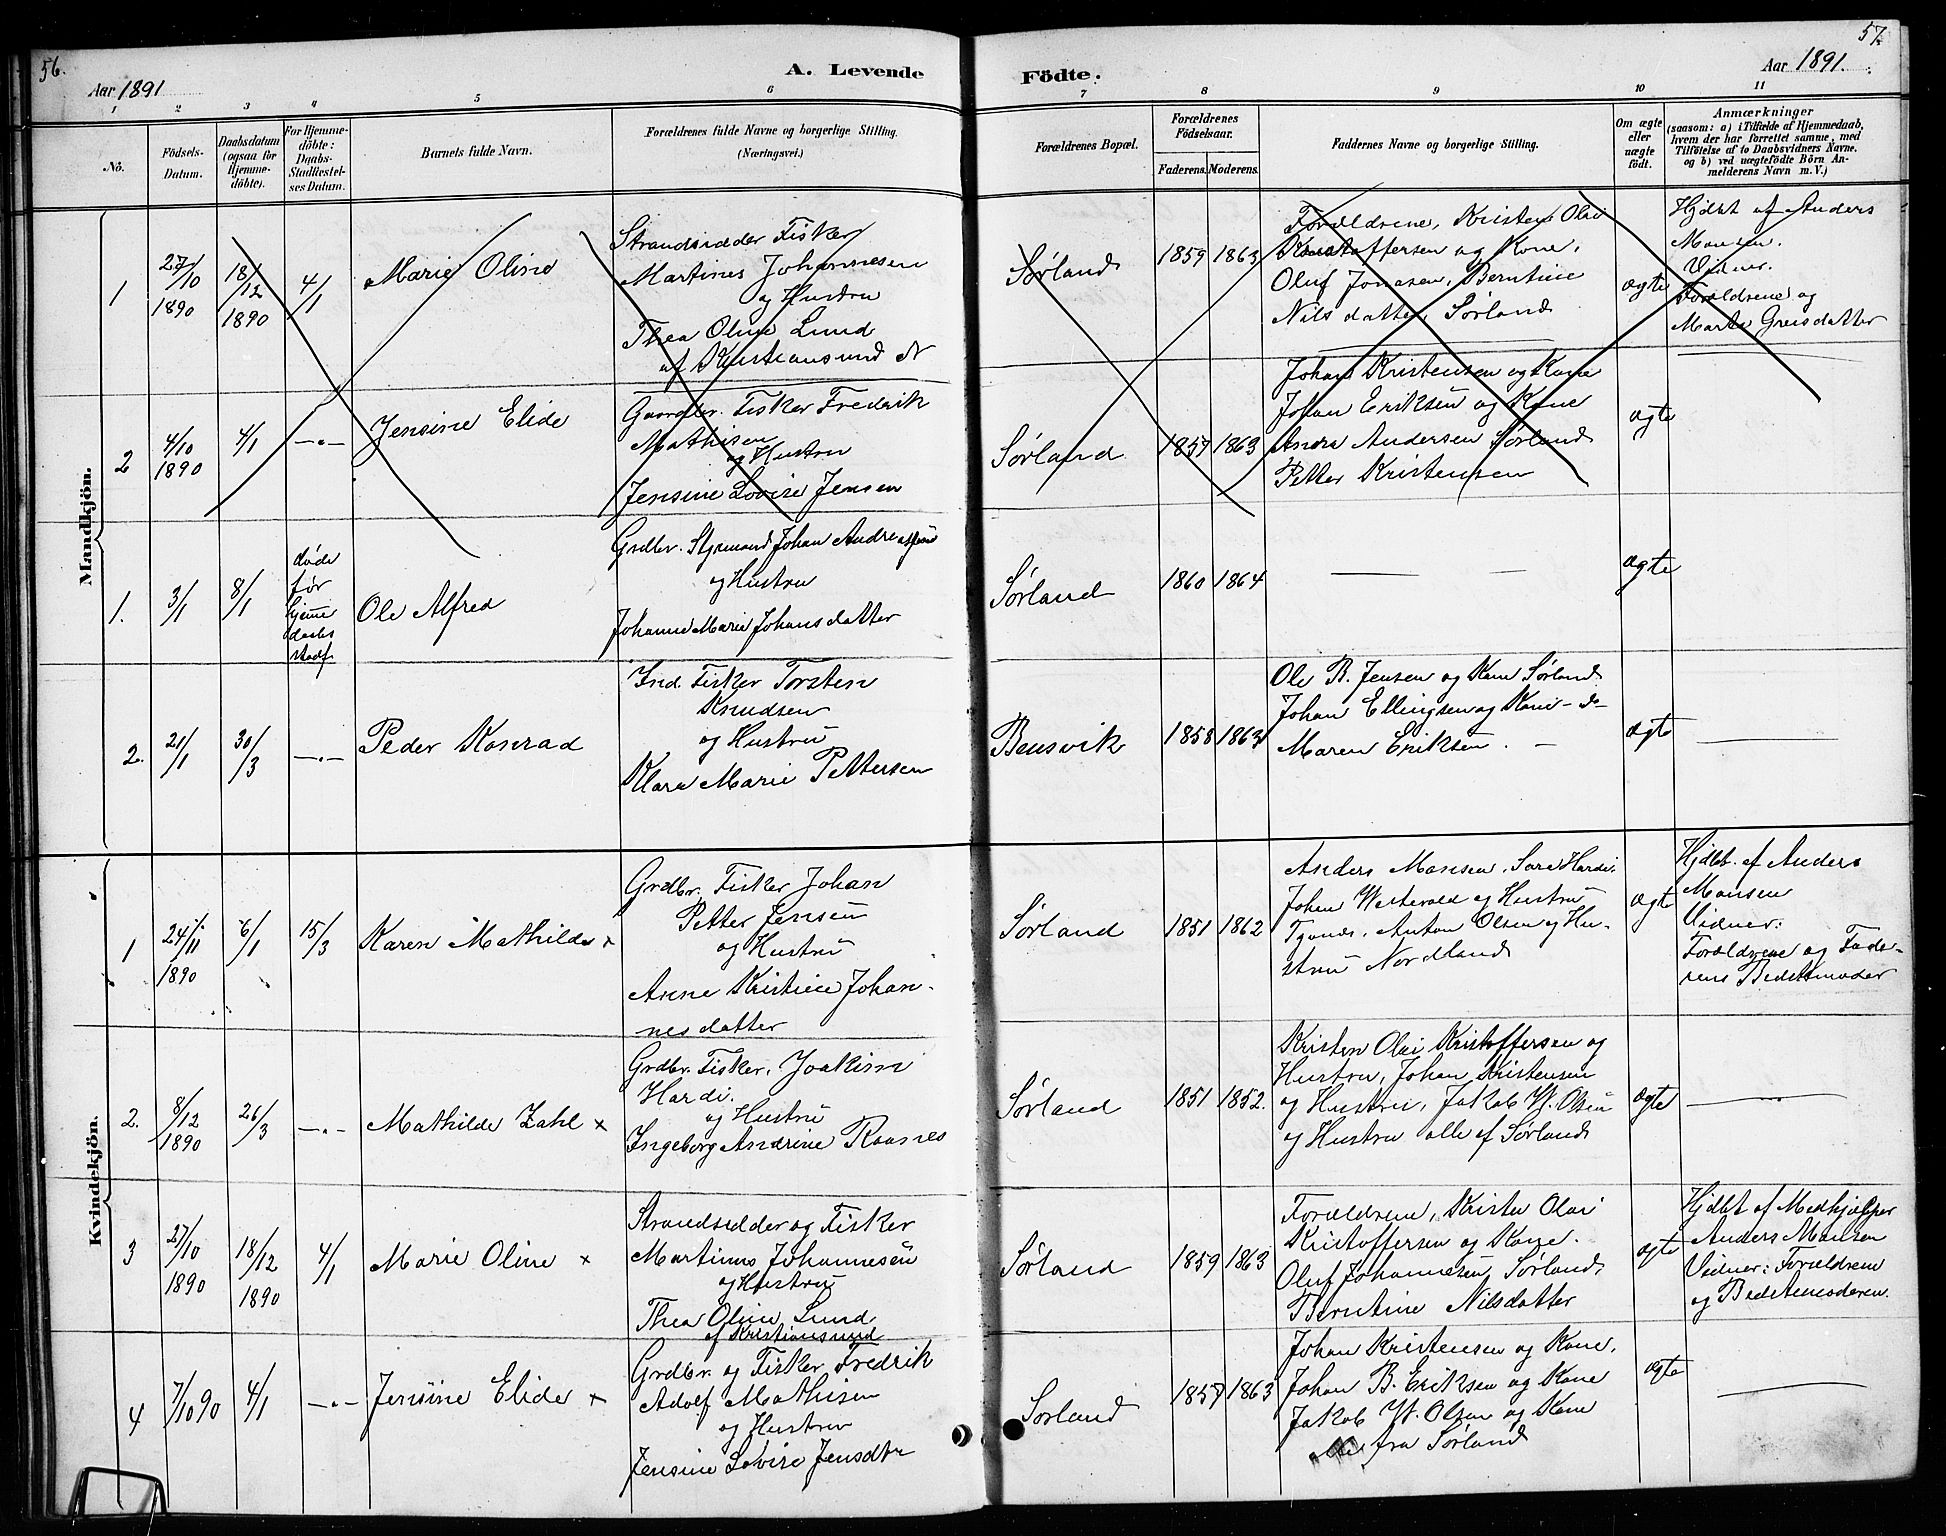 56.
Aar 1891
A. Levende
1 2 3 4 5 6
No.
Födsels-Datum.
Daabsdatum (ogsaa for Hjemme-döbte).
For Hjemme-döbte: Daabs-Stadfæstel-ses Datum.
Barnets fulde Navn.
Forældrenes fulde Navne og borgerlige Stilling.
(Næringsvei.)
Mandkjön.
1
27/10 1890
18/12 1890
4/1
Marie Oline
Strandsidder Fisker
Martines Johannesen
og Hustru
Thea Oline Lund
af Kristiansund N
2
4/10 1890
4/1
—"—
Jensine Elide
Gaardbr. Fisker Fredrik
Mathisen
og Hustru
Jensine Lovise Jensen
1.
3/1
8/1
døde
før
hjemme
daabs
stadf.
Ole Alfred
Grdbr. Styrmand Johan Andreassen
og Hustru
Johanne Marie Johansdatter
2.
21/1
30/3
—"—
Peder Konrad
Ind. Fisker Torsten
Knudsen
og Hustru
Klara Marie Pettersen
Kvindekjön.
1
24/11 1890
6/1
15/3
Karen Mathilde x
Grdbr. Fisker Johan
Petter Jensen
og Hustru
Anne Kristine Johan-
nesdatter
2.
8/12 1890
26/3
—"—
Mathilde Zahl x
Grdbr. Fisker. Joakim
Hardi.
og Hustru
Ingeborg Andrine Raanes
3
27/10 1890
18/12 1890
4/1
Marie Oline x
Strandsidder og Fisker
Martinus Johannesen
og Hustru
Thea Oline Lund
af Kristiansund
4
7/10 90
4/1
—"—
Jensine Elide x
Grdbr. og Fisker Fredrik
Adolf Mathisen
og Hustru
Jensine Lovise Jensdtr
57.
Födte.
Aar 1891.
7 8 9 10 11
Forældrenes Bopæl.
Forældrenes Födselsaar.
Faderens. Moderens.
Faddernes Navne og borgerlige Stilling.
Om ægte eller uægte födt.
Anmærkninger
(saasom: a) i Tilfælde af Hjemmedaab,
hvem der har forrettet samme, med
Tilföielse af to Daabsvidners Navne.
og b) ved uægtefödte Börn An-
melderens Navn m. V.)
Sørland
1859 1863
Forældrene, Kristen Olai
Kristoffersen og Kone,
Oluf Jonasen, Berntine
Nilsdatter, Sørland
ægte
Hjdbt af Anders
Monsen.
Vidner.
Forældrene og
Marta Greisdatter
Sørland
1857 1863
Johan Kristensen og Kone
Johan Eriksen og Kone
Andr. Andersen Sørland
Petter Kristensen
ægte
Sørland
1860 1864
— —
ægte
Bensvik
1858 1863
Ole B. Jensen og Kone Sørland
Johan Ellingsen og Kone - do -
Maren Eriksen. —
ægte
Sørland
1851 1862
Anders Monsen, Sara Hardi,
Johan Westvold og Hustru
Anton Olsen og Hu-
stru Nordland
ægte
Hjdbt. af Anders
Monsen
Vidner:
Forældrene og Fade-
rens Bedstemoder
Sørland
1851 1852.
Kristen Olai Kristoffersen og
Hustru, Johan Kristensen
og Hustru, Jakob W. Olsen
og Hustru alle af Sørland
ægte
Sørland
1859 1863
Forældrene, Kristen Olai
Kristoffersen og Kone.
Oluf Johannesen, Sørland,
Berntine Nilsdatter
ægte
Hjdbt af Medhjælper
Anders Monsen
Vidner: Forældrene
og Bedstemoderen.
Sørland
1857 1863
Johan Kristensen og Kone,
Johan B. Eriksen og Kone
Jakob W. Olsen og Kone
alle fra Sørland
ægte